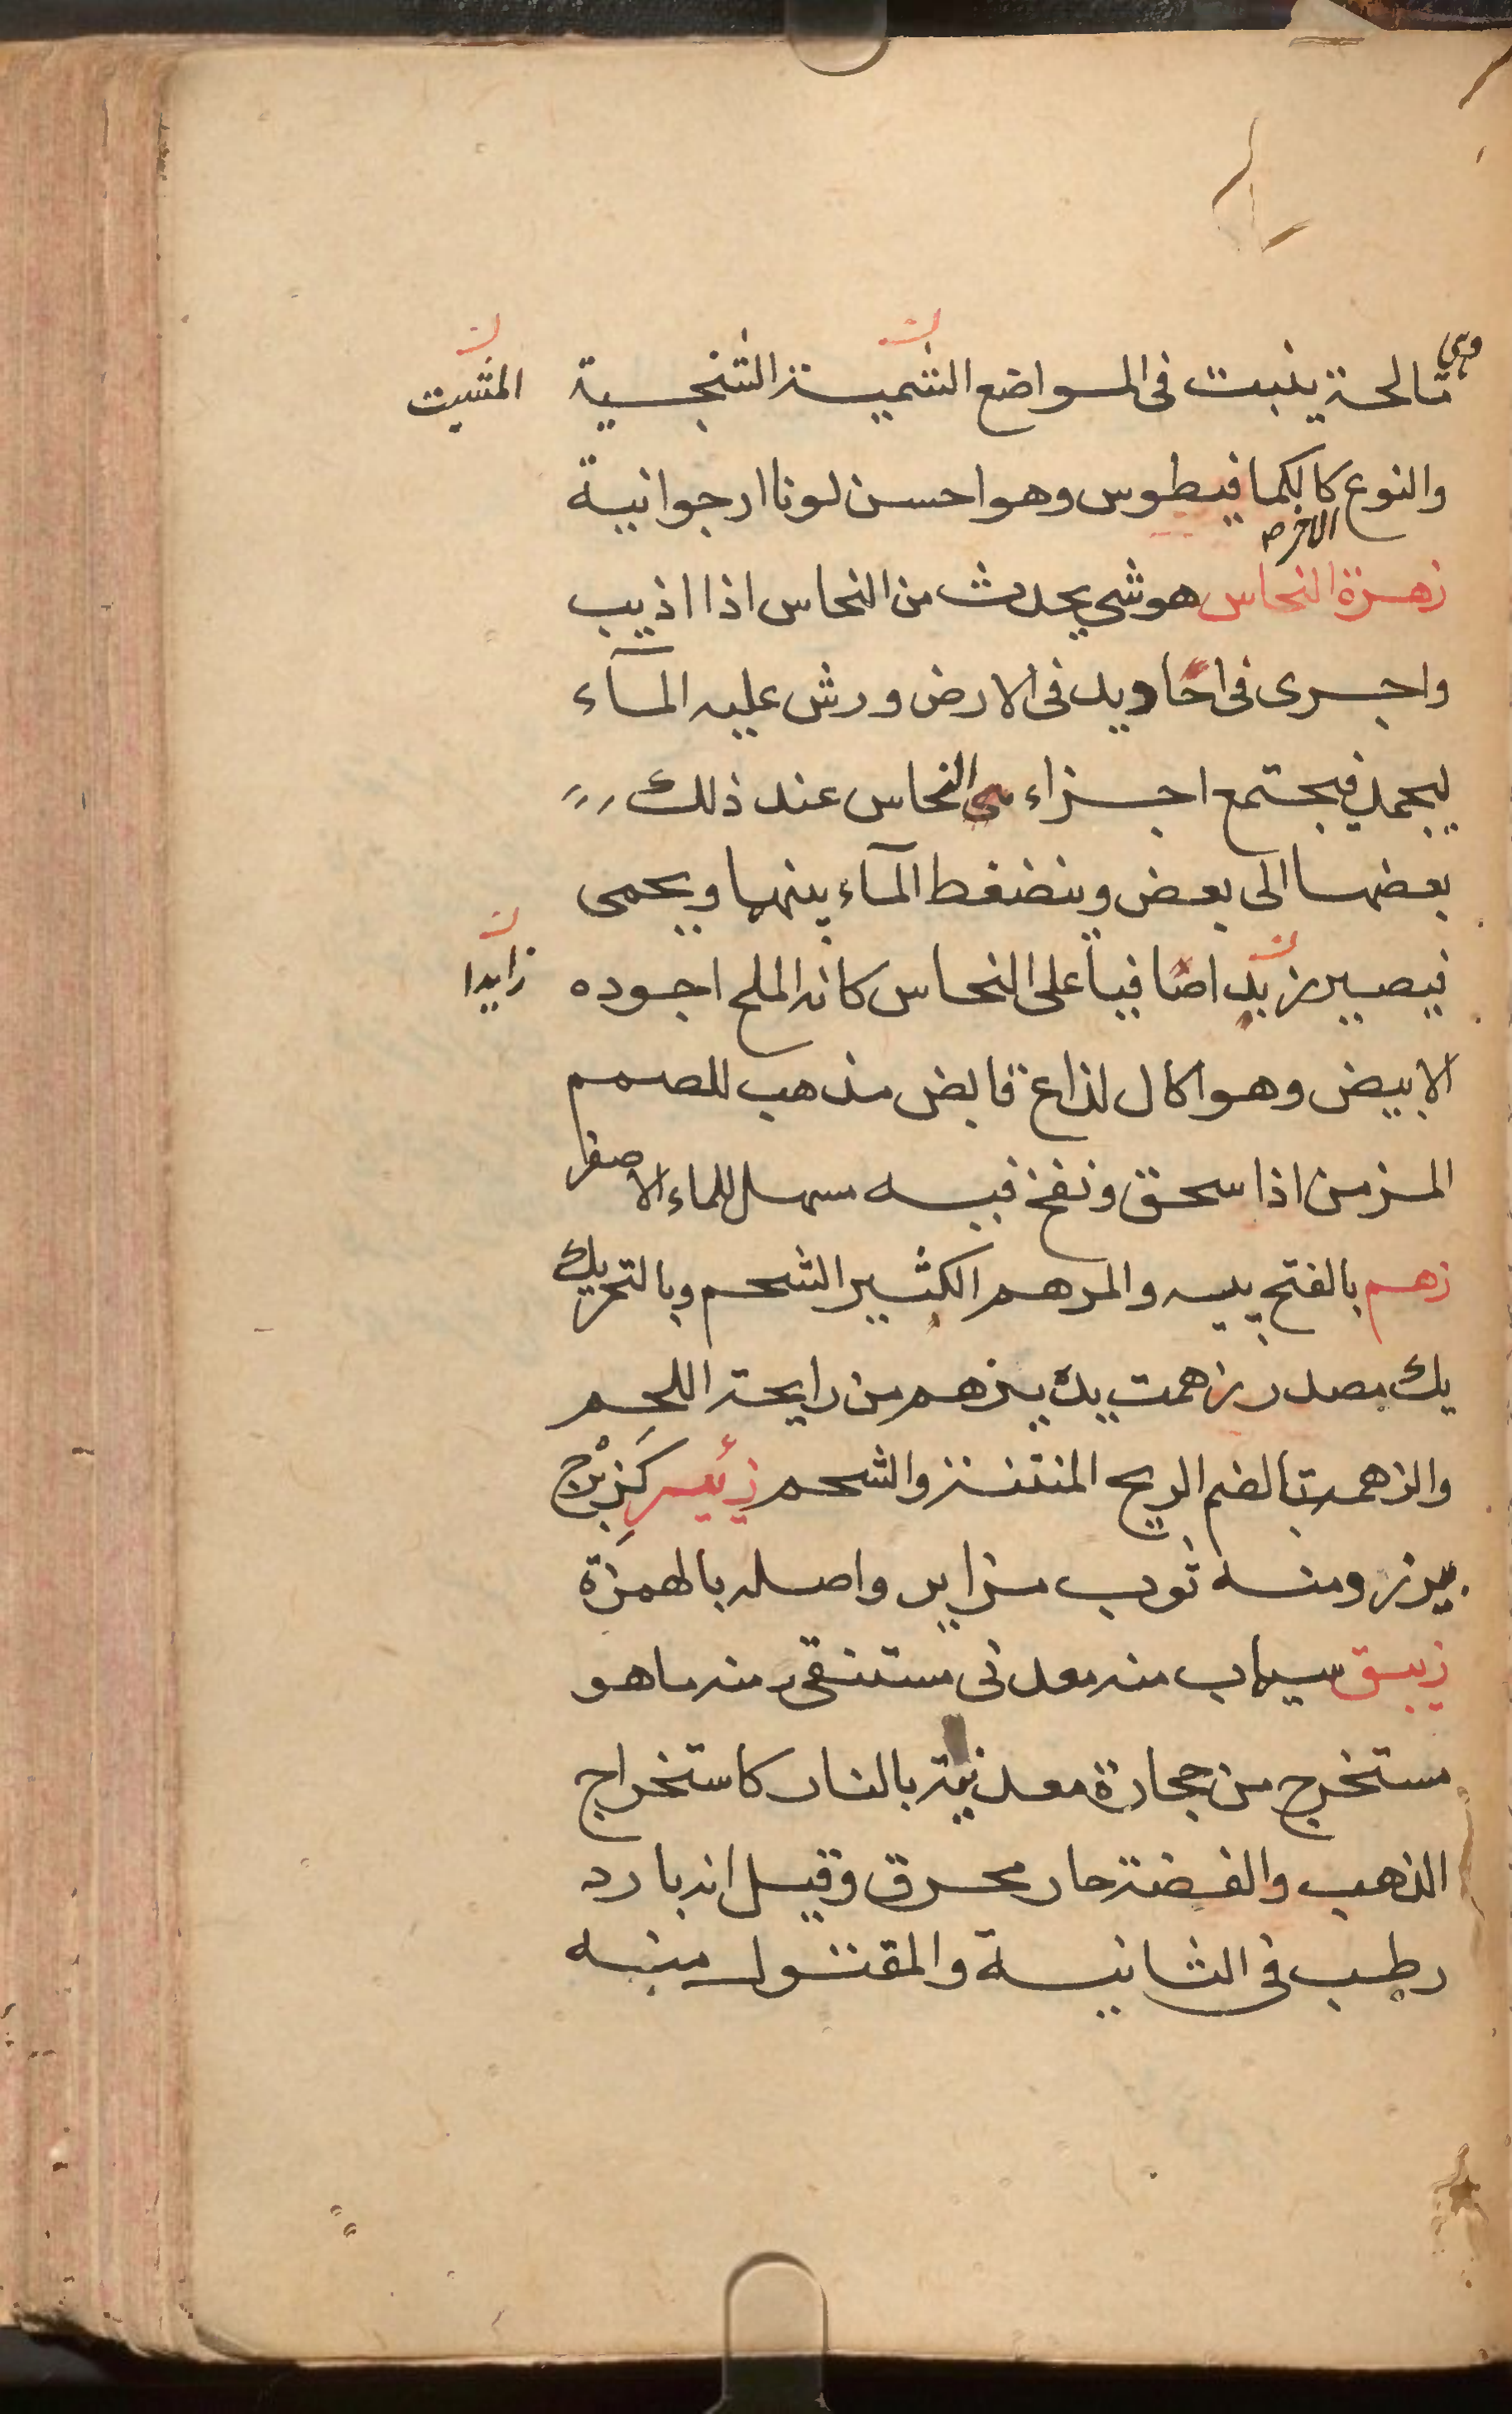 وهي
تالحة ينبت فى المواضع الشمسية الشنجسية
المشيت
والنوع كالكمافيطوس وهو احسن لونا ارجوانية
الاخر
زهرة النحاس هو شي يحدث من النحاس اذا اذيب
واجرى فى اخاديد فى الارض ورش عليه المآء
ليجمد فيجتمع اجزاء النحاس عند ذلك
بعضها الى بعض وينضغط المآء بينها ويحمى
فيصير زبدا صافيا على النحاس كانه الملح اجوده
زايدا
الابيض وهو اكال لذاع قابض مذهب للصمم
المزمن اذا سحق ونفخ فيه مسهل للماء الاصفر
زهم بالفتح پيه والمرهم الكثير الشحم وبالتحريك
يك مصدر زهمت يده يزهم من رايحة اللحم
والزهمة بالضم الريح المنتنة والشحم زئبر كزبرج
پرز ومنه ثوب مزابر واصله بالهمزة
زيبق سيماب منه معدنى مستنقى ومنه ما هو
مستخرج من حجارة معدنية بالنار كاستخراج
الذهب والفضة حار محرق وقيل انه بارد
رطب فى الثانية والمقتول منه